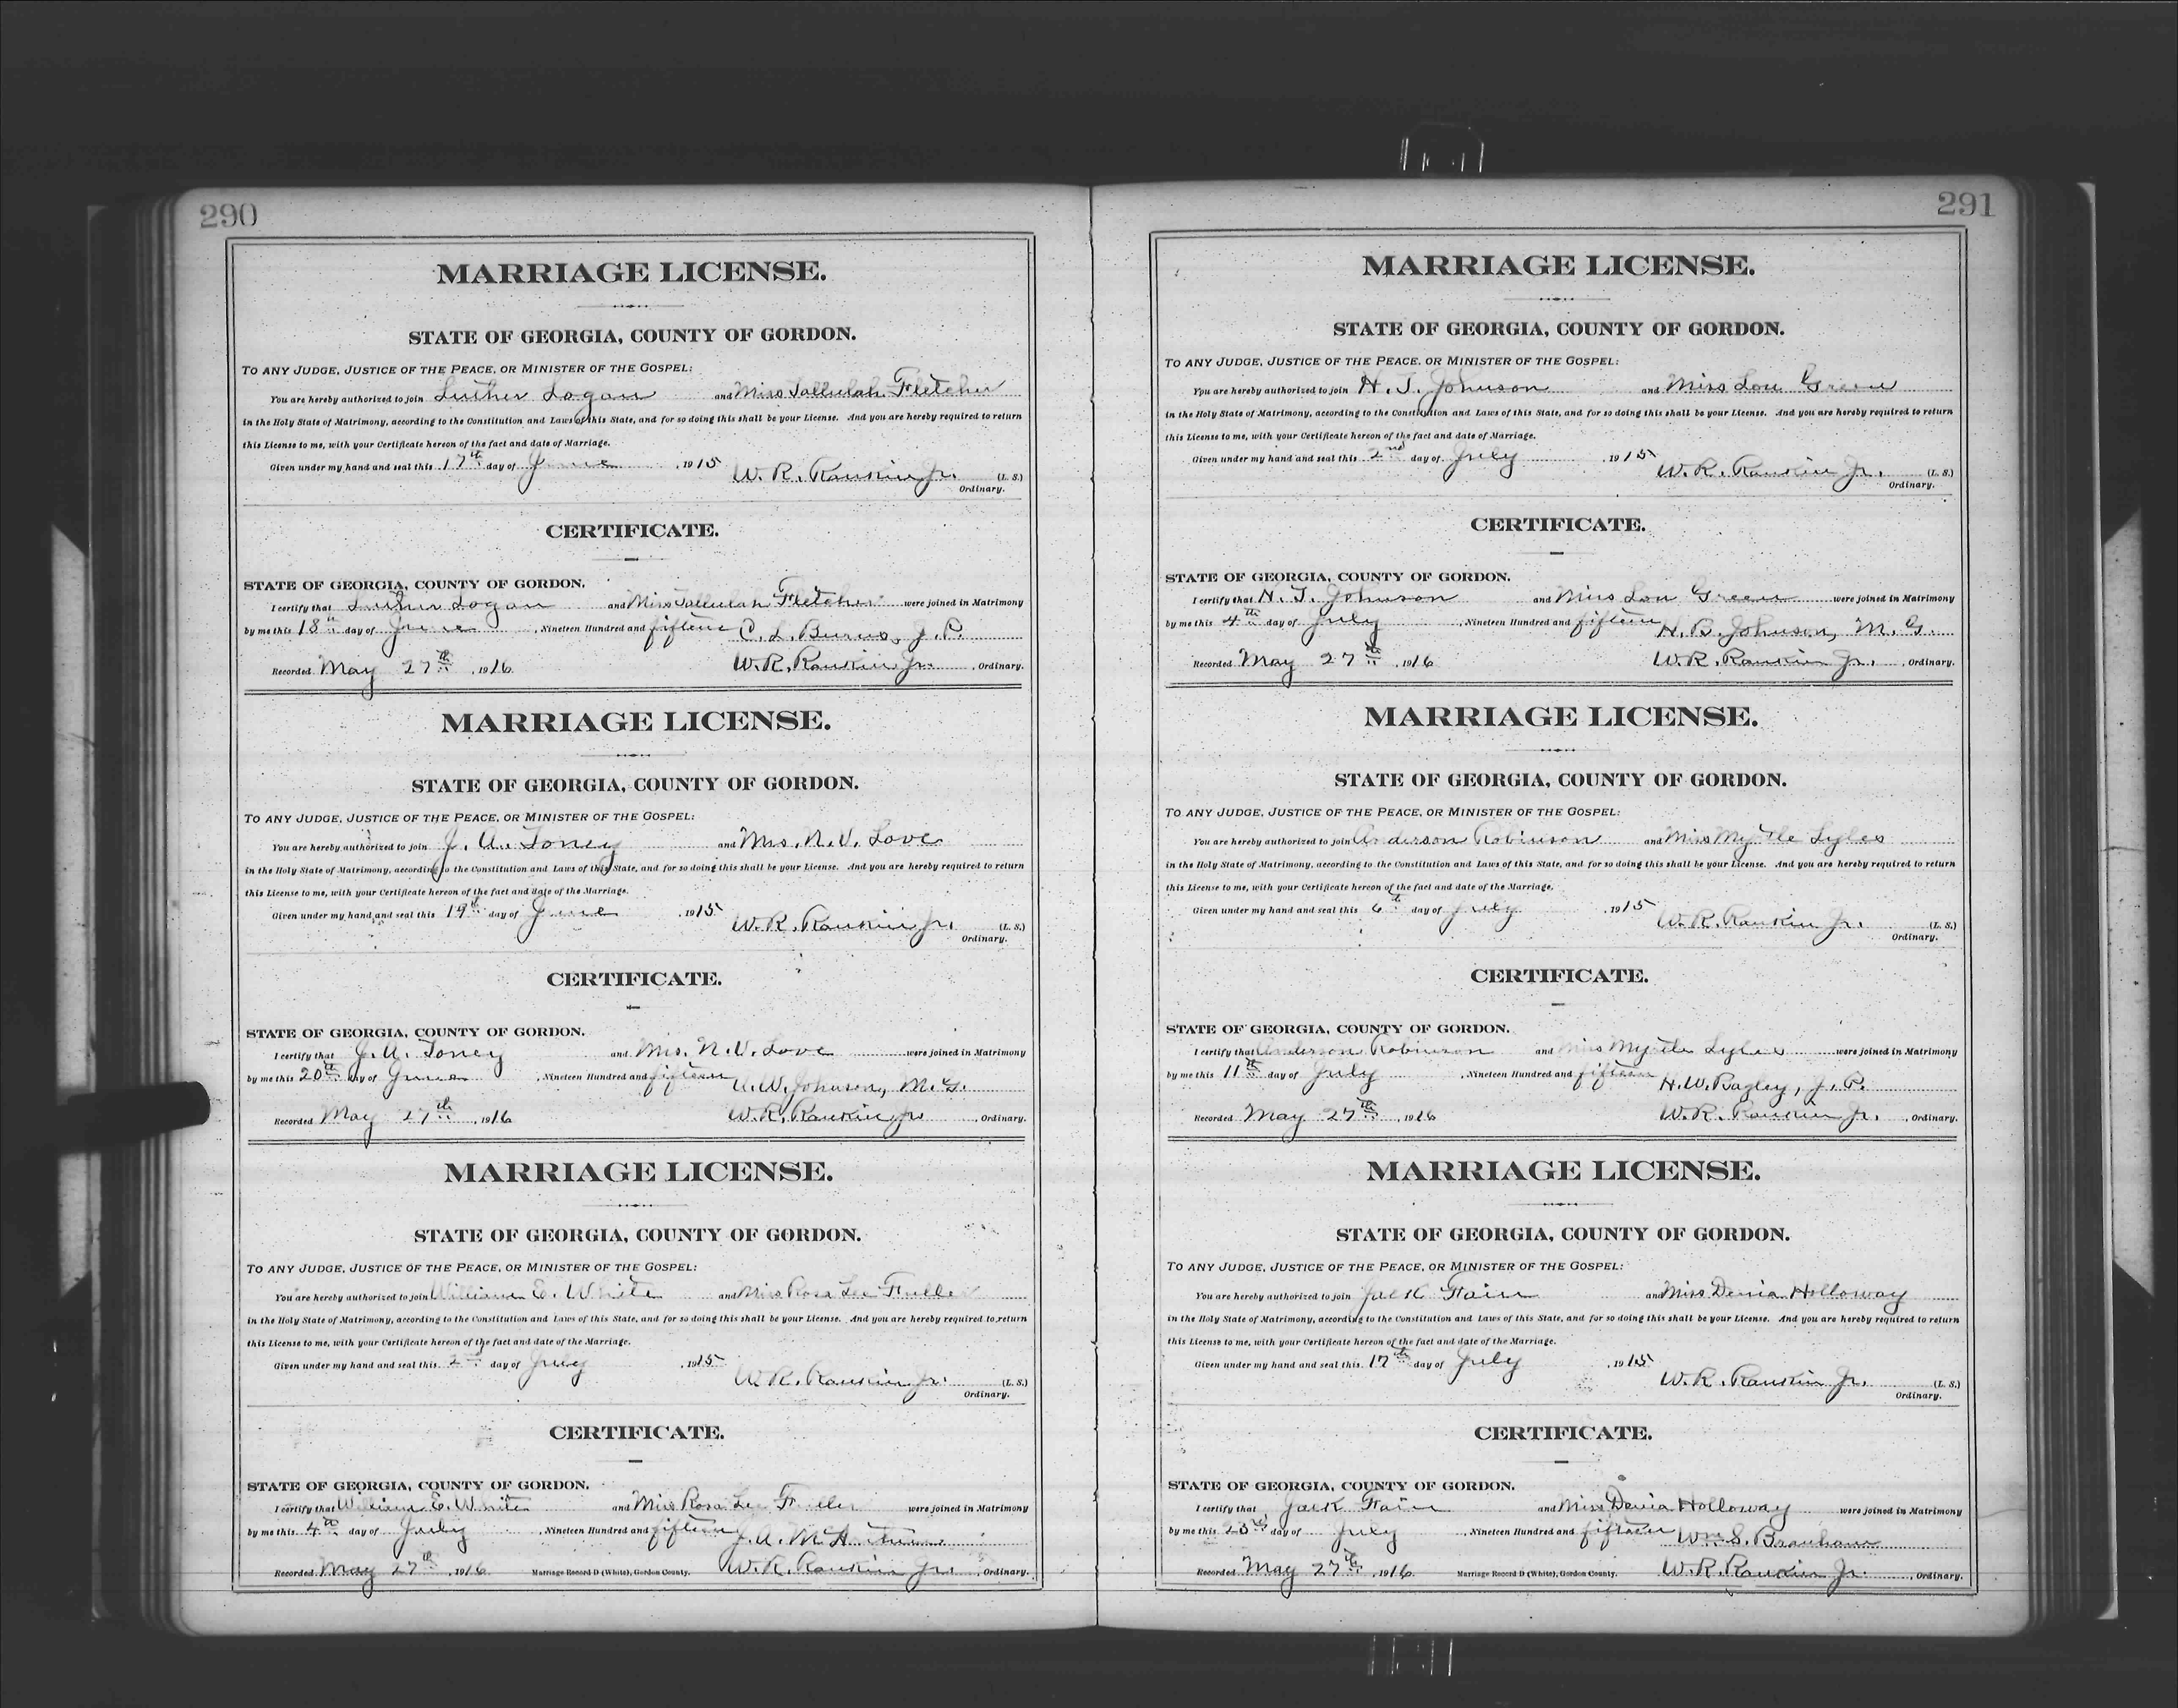 290
MARRIAGE LICENSE.
STATE OF GEORGIA, COUNTY OF GORDON.
TO ANY JUDGE, JUSTICE OF THE PEACE, OR MINISTER OF THE GOSPEL:
You are hereby authorized to join Luther Logan and Miss Tallulah Fletcher
in the Holy State of Matrimony, according to the Constitution and Laws of this State, and for so doing this shall be your License. And you are hereby required to return
this License to me, with your Certificate hereon of the fact and date of Marriage.
Given under my hand and seal this 17th day of June, 1915 W. R. Rankin Jr. (L. S.)
Ordinary.
CERTIFICATE.
STATE OF GEORGIA, COUNTY OF GORDON.
I certify that Luther Logan and Miss Tallulah Fletcher were joined in Matrimony
by me this 18th day of June, Nineteen Hundred and fifteen C. L. Burns, J. P.
Recorded May 27th, 1916 W. R. Rankin Jr., Ordinary.
MARRIAGE LICENSE.
STATE OF GEORGIA, COUNTY OF GORDON.
TO ANY JUDGE, JUSTICE OF THE PEACE, OR MINISTER OF THE GOSPEL:
You are hereby authorized to join J. A. Toney and Mrs. N. V. Love
in the Holy State of Matrimony, according to the Constitution and Laws of this State, and for so doing this shall be your License. And you are hereby required to return
this License to me, with your Certificate hereon of the fact and date of the Marriage.
Given under my hand and seal this 19th day of June, 1915 W. R. Rankin Jr. (L. S.)
Ordinary.
CERTIFICATE.
STATE OF GEORGIA, COUNTY OF GORDON.
I certify that J. A. Toney and Mrs. N. V. Love were joined in Matrimony
by me this 20th day of June, Nineteen Hundred and fifteen A. W. Johnson, M. G.
Recorded May 27th, 1916 W. R. Rankin Jr., Ordinary.
MARRIAGE LICENSE.
STATE OF GEORGIA, COUNTY OF GORDON.
TO ANY JUDGE, JUSTICE OF THE PEACE, OR MINISTER OF THE GOSPEL:
You are hereby authorized to join William E. White and Miss Rosa Lee Fuller
in the Holy State of Matrimony, according to the Constitution and Laws of this State, and for so doing this shall be your License. And you are hereby required to return
this License to me, with your Certificate hereon of the fact and date of the Marriage.
Given under my hand and seal this 2nd day of July, 1915 W. R. Rankin Jr. (L. S.)
Ordinary.
CERTIFICATE.
STATE OF GEORGIA, COUNTY OF GORDON.
I certify that William E. White and Miss Rosa Lee Fuller were joined in Matrimony
by me this 4th day of July, Nineteen Hundred and fifteen J. A.
Recorded May 27th, 1916 Marriage Record D (White), Gordon County. W. R. Rankin Jr., Ordinary.
291
MARRIAGE LICENSE.
STATE OF GEORGIA, COUNTY OF GORDON.
TO ANY JUDGE, JUSTICE OF THE PEACE, OR MINISTER OF THE GOSPEL:
You are hereby authorized to join H. T. Johnson and Miss Lou Green
in the Holy State of Matrimony, according to the Constitution and Laws of this State, and for so doing this shall be your License. And you are hereby required to return
this License to me, with your Certificate hereon of the fact and date of Marriage.
Given under my hand and seal this 2nd day of July, 1915 W. R. Rankin Jr. (L. S.)
Ordinary.
CERTIFICATE.
STATE OF GEORGIA, COUNTY OF GORDON.
I certify that H. T. Johnson and Miss Lou Green were joined in Matrimony
by me this 4th day of July, Nineteen Hundred and fifteen H. B. Johnson, M. G.
Recorded May 27th, 1916 W. R. Rankin Jr., Ordinary.
MARRIAGE LICENSE.
STATE OF GEORGIA, COUNTY OF GORDON.
TO ANY JUDGE, JUSTICE OF THE PEACE, OR MINISTER OF THE GOSPEL:
You are hereby authorized to join Anderson Robinson and Miss Myrtle Lyles
in the Holy State of Matrimony, according to the Constitution and Laws of this State, and for so doing this shall be your License. And you are hereby required to return
this License to me, with your Certificate hereon of the fact and date of the Marriage.
Given under my hand and seal this 6th day of July, 1915 W. R. Rankin Jr. (L. S.)
Ordinary.
CERTIFICATE.
STATE OF GEORGIA, COUNTY OF GORDON.
I certify that Anderson Robinson and Miss Myrtle Lyles were joined in Matrimony
by me this 11th day of July, Nineteen Hundred and fifteen H. W. Bagley, J. P.
Recorded May 27th, 1916 W. R. Rankin Jr., Ordinary.
MARRIAGE LICENSE.
STATE OF GEORGIA, COUNTY OF GORDON.
TO ANY JUDGE, JUSTICE OF THE PEACE, OR MINISTER OF THE GOSPEL:
You are hereby authorized to join Jack Fain and Miss Holloway
in the Holy State of Matrimony, according to the Constitution and Laws of this State, and for so doing this shall be your License. And you are hereby required to return
this License to me, with your Certificate hereon of the fact and date of the Marriage.
Given under my hand and seal this 17th day of July, 1915 W. R. Rankin Jr. (L. S.)
Ordinary.
CERTIFICATE.
STATE OF GEORGIA, COUNTY OF GORDON.
I certify that Jack Fain and Miss Holloway were joined in Matrimony
by me this day of July, Nineteen Hundred and fifteen Wm. S. Branham
Recorded May 27th, 1916 Marriage Record D (White), Gordon County. W. R. Rankin Jr., Ordinary.